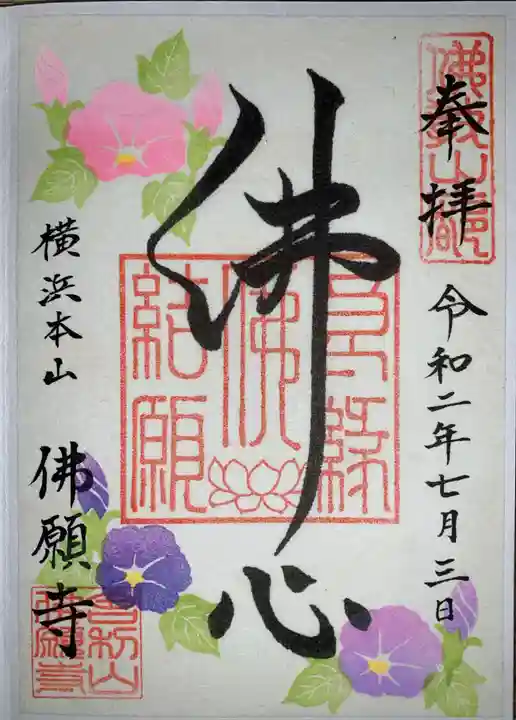 奉拝
令和二年七月三日
佛心
横浜本山
佛願寺